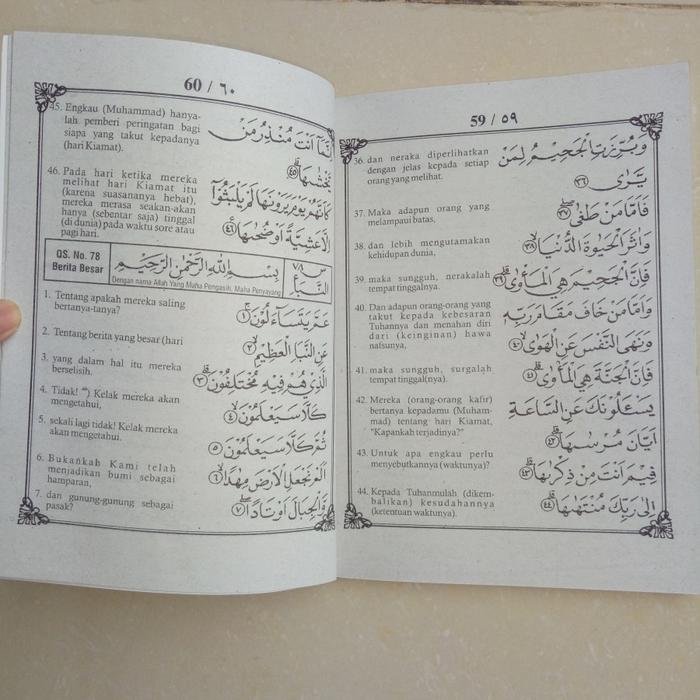 59 / ٥٩
36. dan neraka diperlihatkan
dengan jelas kepada setiap
orang yang melihat.
وَبُرِّزَتِ الْجَحِيْمُ لِمَنْ
يَّرٰى ٣٦
37. Maka adapun orang yang
melampaui batas,
فَاَمَّا مَنْ طَغٰى ٣٧
38. dan lebih mengutamakan
kehidupan dunia,
وَاٰثَرَ الْحَيٰوةَ الدُّنْيَا ٣٨
39. maka sungguh, nerakalah
tempat tinggalnya.
فَاِنَّ الْجَحِيْمَ هِيَ الْمَأْوٰى ٣٩
40. Dan adapun orang-orang yang
takut kepada kebesaran
Tuhannya dan menahan diri
dari (keinginan) hawa
nafsunya,
وَاَمَّا مَنْ خَافَ مَقَامَ رَبِّهٖ
وَنَهَى النَّفْسَ عَنِ الْهَوٰى ٤٠
41. maka sungguh, surgalah
tempat tinggal(nya).
فَاِنَّ الْجَنَّةَ هِيَ الْمَأْوٰى ٤١
42. Mereka (orang-orang kafir)
bertanya kepadamu (Muham-
mad) tentang hari Kiamat,
"Kapankah terjadinya?"
يَسْـَٔلُوْنَكَ عَنِ السَّاعَةِ
اَيَّانَ مُرْسٰىهَا ٤٢
43. Untuk apa engkau perlu
menyebutkannya (waktunya)?
فِيْمَ اَنْتَ مِنْ ذِكْرٰىهَا ٤٣
44. Kepada Tuhanmulah (dikem-
balikan) kesudahannya
(ketentuan waktunya).
اِلٰى رَبِّكَ مُنْتَهٰىهَا ٤٤
60 / ٦٠
45. Engkau (Muhammad) hanya-
lah pemberi peringatan bagi
siapa yang takut kepadanya
(hari Kiamat).
اِنَّمَآ اَنْتَ مُنْذِرُ مَنْ
يَّخْشٰىهَا ٤٥
46. Pada hari ketika mereka
melihat hari Kiamat itu
(karena suasananya hebat),
mereka merasa seakan-akan
hanya (sebentar saja) tinggal
(di dunia) pada waktu sore atau
pagi hari.
كَاَنَّهُمْ يَوْمَ يَرَوْنَهَا لَمْ يَلْبَثُوْٓا
اِلَّا عَشِيَّةً اَوْ ضُحٰىهَا ٤٦
QS. No. 78
Berita Besar
بِسْمِ اللّٰهِ الرَّحْمٰنِ الرَّحِيْمِ
Dengan nama Allah Yang Maha Pengasih, Maha Penyayang
س ٧٨
النَّبَأ
1. Tentang apakah mereka saling
bertanya-tanya?
عَمَّ يَتَسَاۤءَلُوْنَ ١
2. Tentang berita yang besar (hari
عَنِ النَّبَاِ الْعَظِيْمِ ٢
3. yang dalam hal itu mereka
berselisih.
الَّذِيْ هُمْ فِيْهِ مُخْتَلِفُوْنَ ٣
4. Tidak! *) Kelak mereka akan
mengetahui,
كَلَّا سَيَعْلَمُوْنَ ٤
5. sekali lagi tidak! Kelak mereka
akan mengetahui.
ثُمَّ كَلَّا سَيَعْلَمُوْنَ ٥
6. Bukankah Kami telah
menjadikan bumi sebagai
hamparan,
اَلَمْ نَجْعَلِ الْاَرْضَ مِهٰدًا ٦
7. dan gunung-gunung sebagai
pasak?
وَّالْجِبَالَ اَوْتَادًا ٧